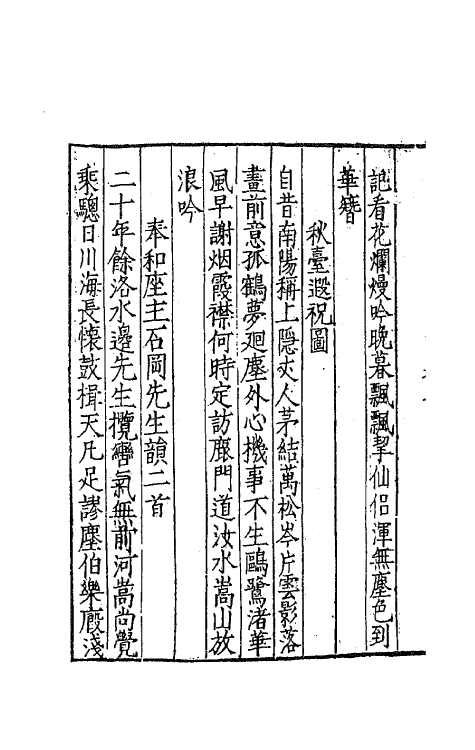 記看花爛熳吟晚暮飄飄挈仙侶渾無塵色到
華簪
秋臺遐祝圖
自昔南陽稱上隱夾人茅結萬松岑片雲影落
畫前意孤鶴夢廻塵外心機事不生鷗鷺渚華
風早謝烟霞襟何時定訪鹿門道汝水嵩山放
浪吟
奉和座主石岡先生韻二首
二十年餘洛水邊先生攬轡氣無前河嵩尚覺
乘驄日川海長懷鼓楫天凡足謬塵伯樂廄淺